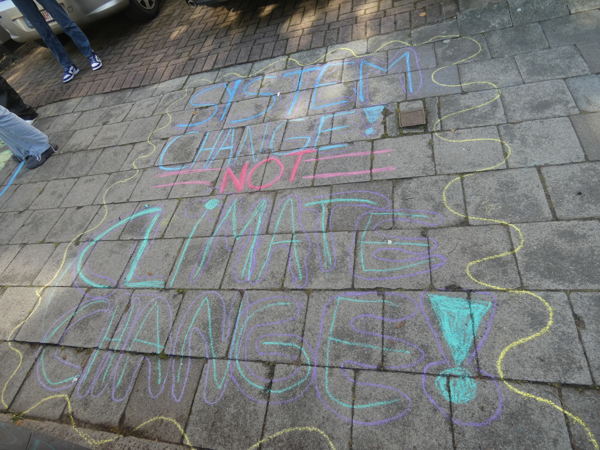 SYSTEM
CHANGE!
NOT
CLIMATE
CHANGE!